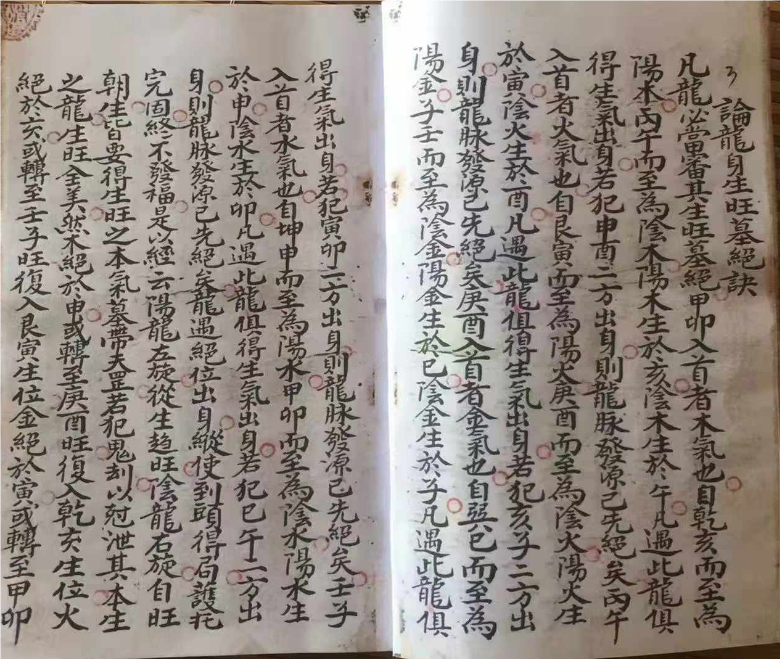 論龍身生旺墓絕訣
凡龍必當審其生旺墓絕甲卯入首者木氣也自乾亥而至為
陽木丙午而至為陰木陽木生於亥陰木生於午凡遇此龍俱
得生氣出身若犯申酉二方出身則龍脉發源已先絕矣丙午
入首者火氣也自艮寅而至為陽火庚酉而至為陰火陽火生
於寅陰火生於酉凡遇此龍俱得生氣出身若犯亥子二方出
身則龍脉發源已先絕矣庚酉入首者金氣也自巽巳而至為
陽金子壬而至為陰金陽金生於巳陰金生於子凡遇此龍俱
得生氣出身若犯寅卯二方出身則龍脉發源已先絕矣壬子
入首者水氣也自坤申而至為陽水甲卯而至為陰水陽水生
於申陰水生於卯凡遇此龍俱得生氣出身若犯巳午二方出
身則龍脉發源已先絕矣龍遇絕位出身縱使到頭得局護托
完固終不發福是以經云陽龍左旋從生趋旺陰龍右旋自旺
朝生皆要得生旺之本氣墓帶天罡若犯鬼刦以愆泄其本生
之龍生旺全美然木絕於申或轉至庚酉旺復入乾亥生位火
絕於亥或轉至壬子旺復入艮寅生位金絕於寅或轉至甲卯